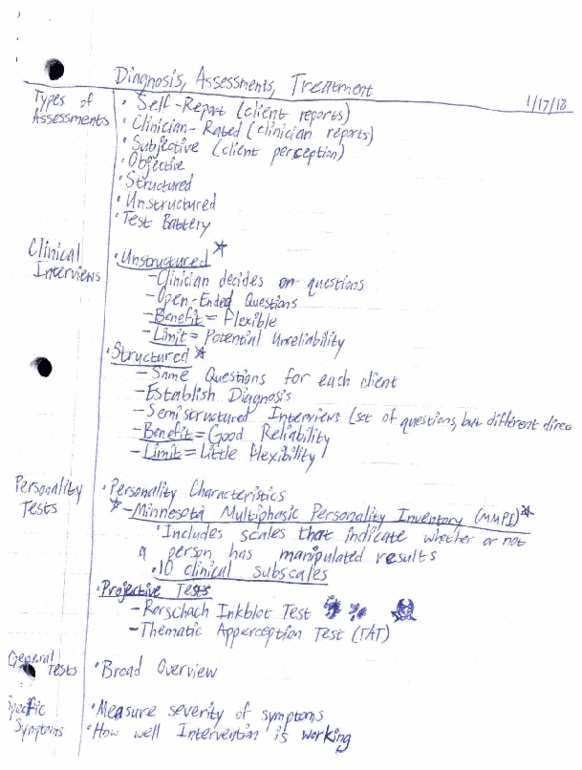 Diagnosis, Assessments, Treatment
1/17/18
Types of
Assessments
• Self-Report (client reports)
• Clinician-Rated (clinician reports)
• Subjective (client perception)
• Objective
• Structured
• Unstructured
• Test Battery
Clinical
Interviews
• Unstructured ☆
- Clinician decides on questions
- Open-Ended Questions
- Benefit = Flexible
- Limit = Potential Unreliability
• Structured ☆
- Same Questions for each client
- Establish Diagnosis
- Semistructured Interviews (set of questions, but different direc
- Benefit = Good Reliability
- Limit = Little flexibility
Personality
Tests
• Personality Characteristics
☆ - Minnesota Multiphasic Personality Inventory (MMPI) ☆
• Includes scales that indicate whether or not
a person has manipulated results
• 10 clinical subscales
• Projective Tests
- Rorschach Inkblot Test
- Thematic Apperception Test (TAT)
General
Tests
• Broad Overview
Specific
Symptoms
• Measure severity of symptoms
• How well Intervention is working